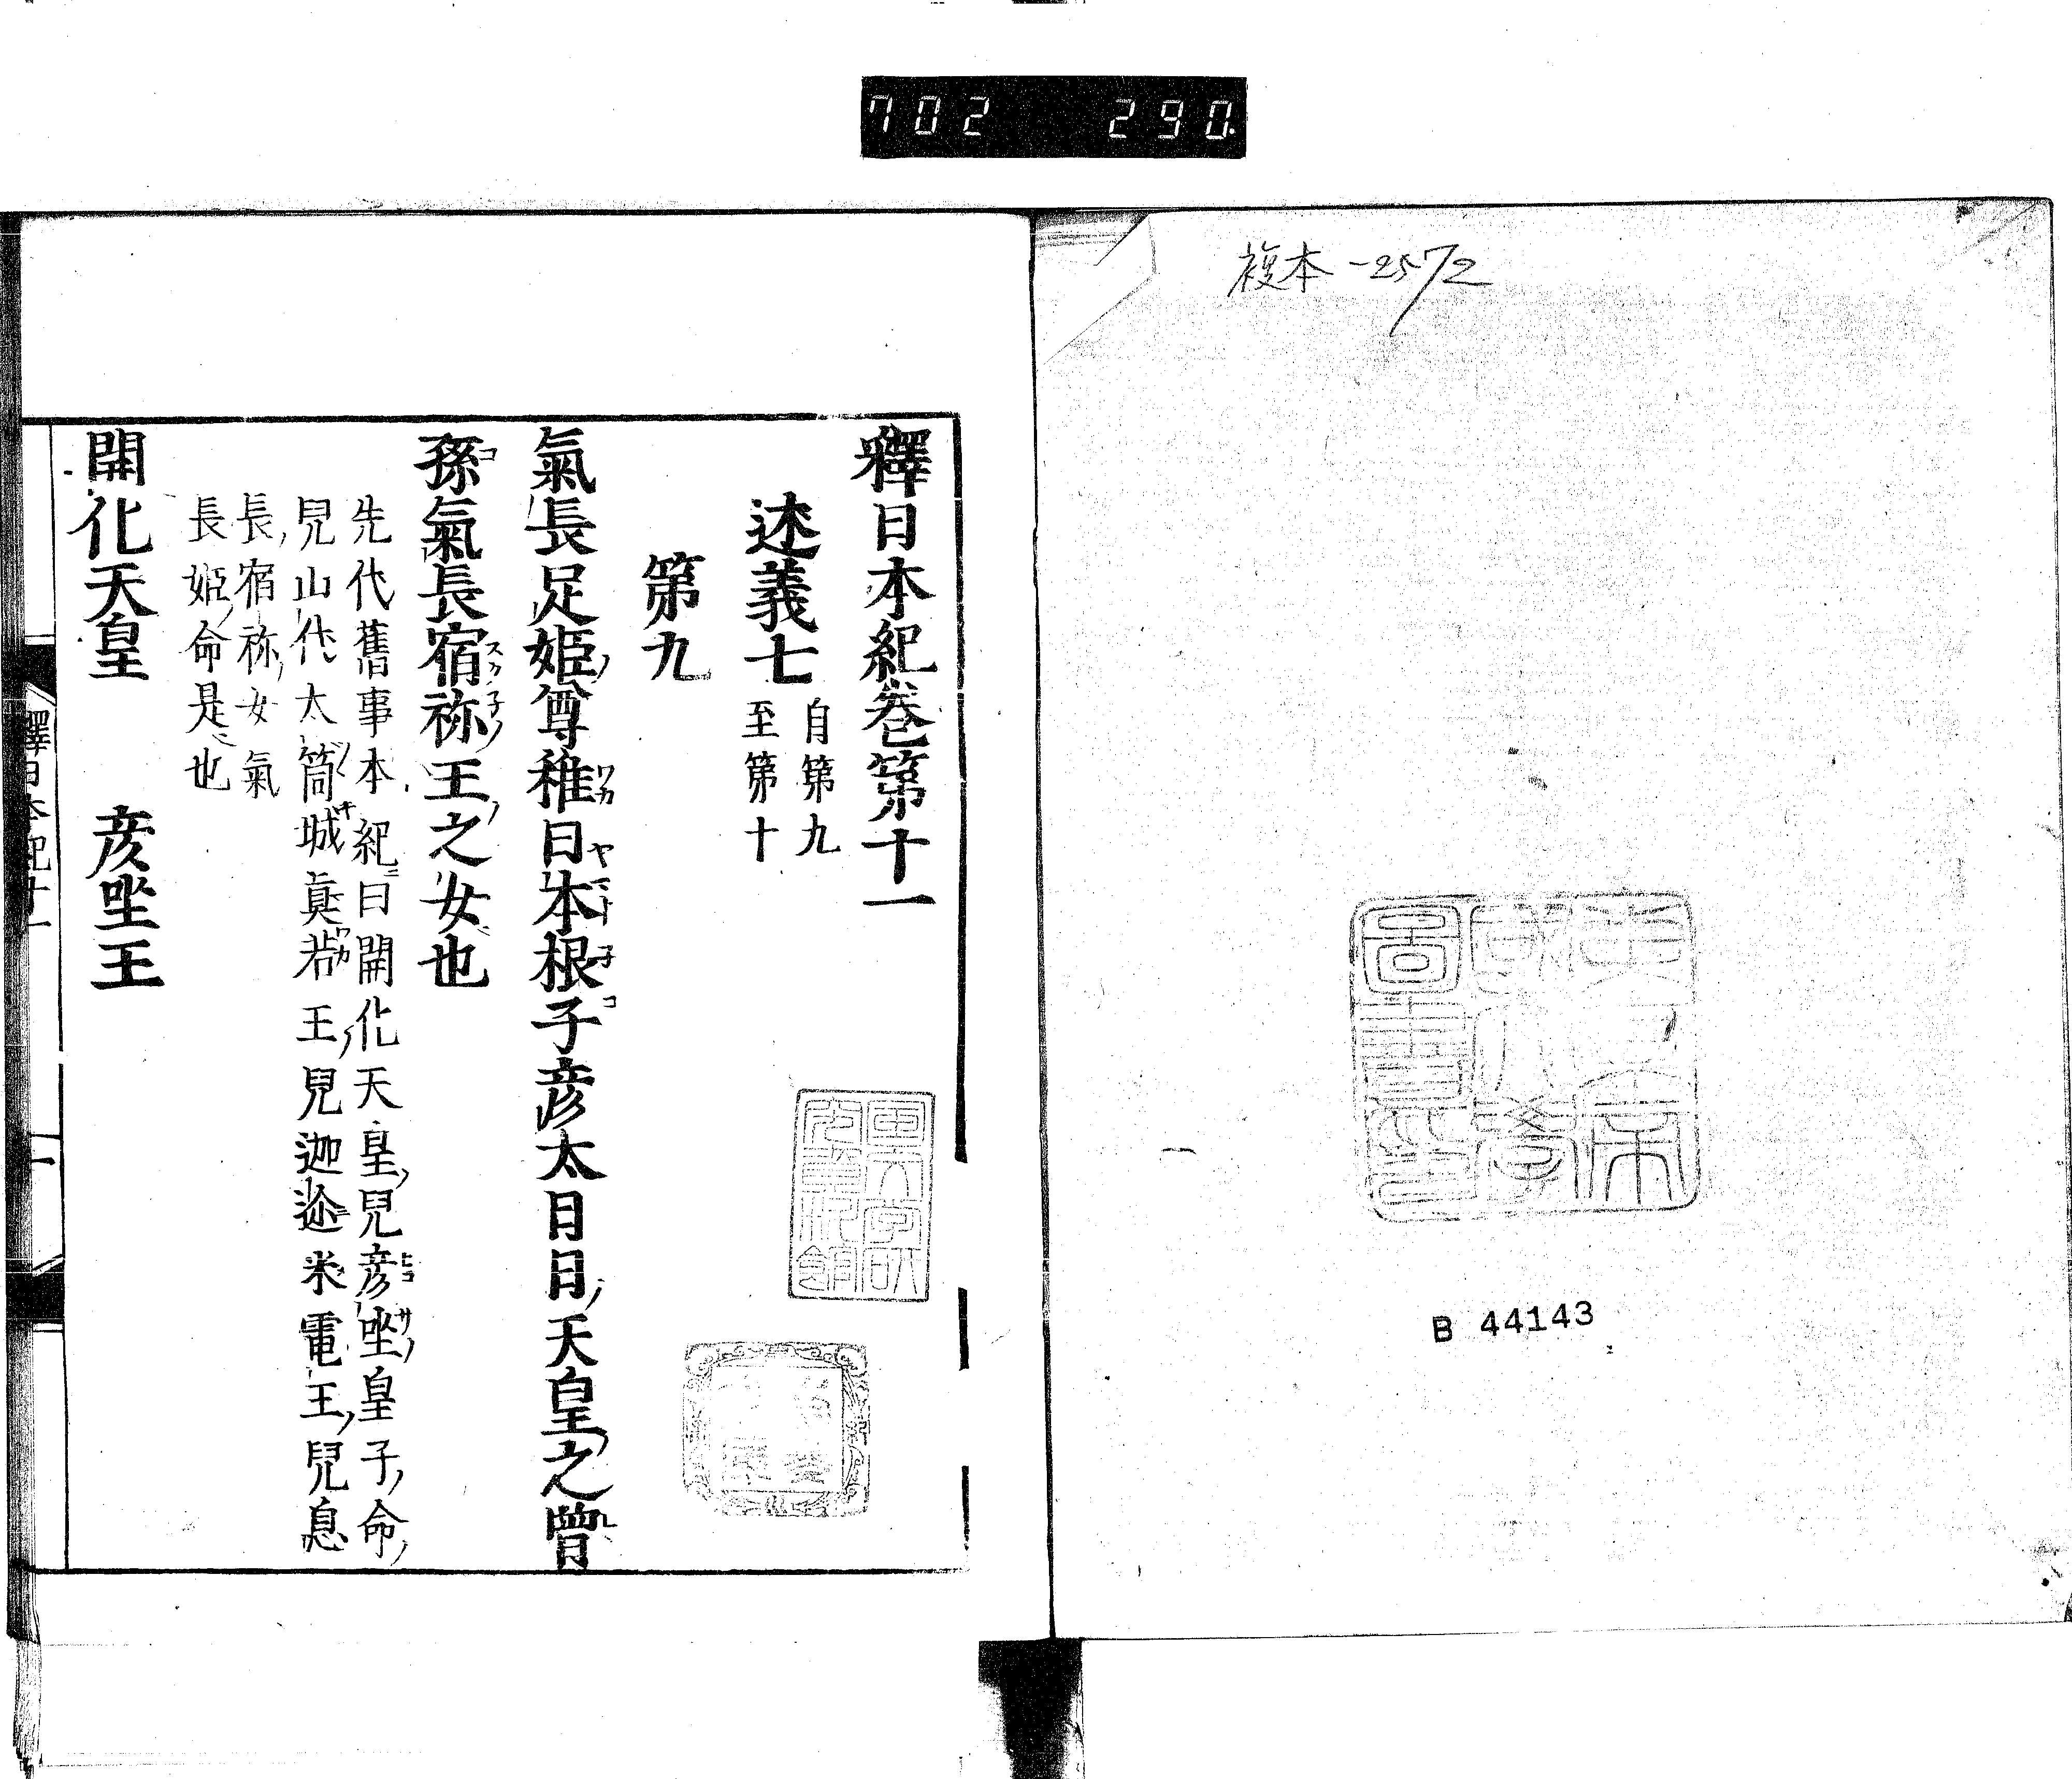 702 290.
複本-2572
B 44143
釋日本紀卷第十一
述義七 自第九
至第十
第九
氣長足姬尊稚日本根子彦太日日天皇之曾
孫氣長宿祢王之女也
先代舊事本紀曰開化天皇兒彦坐皇子命
兒山代太筒城真若王兒迦迩米雷王兒息
長宿祢女氣
長姬命是也
開化天皇 彦坐王
釋日本紀十一
一